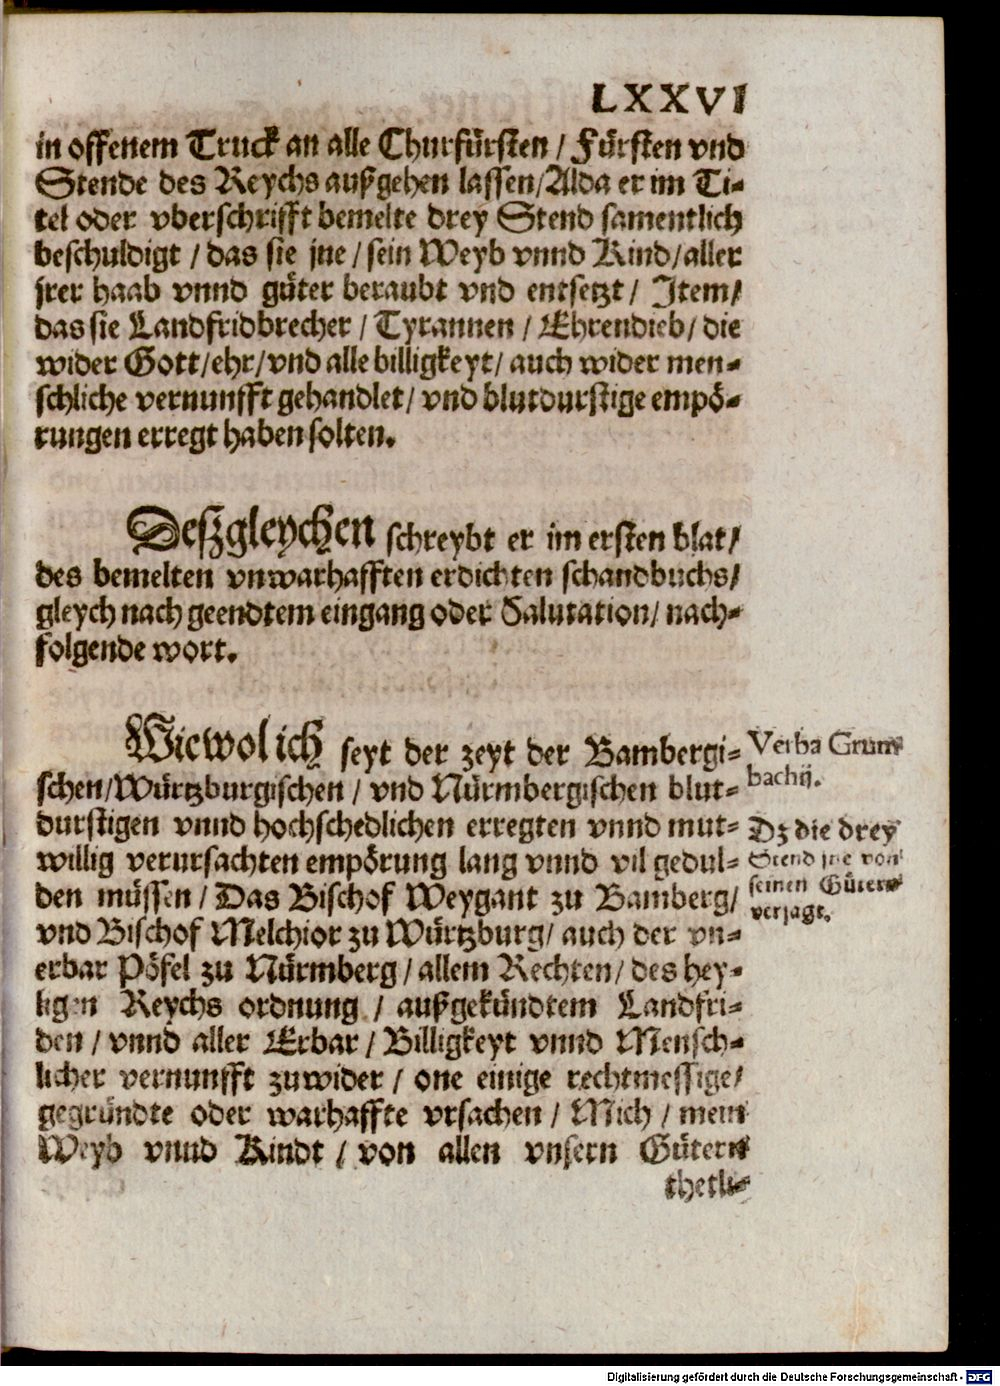 LXXVI
in offenem Truck an alle Churfürsten / Fürsten vnd
Stende des Reychs außgehen lassen/Alda er im Ti-
tel oder vberschrifft bemelte drey Stend samentlich
beschuldigt / das sie jne / sein Weyb vnnd Kind/aller
jrer haab vnnd güter beraubt vnd entsetzt / Item/
das sie Landfridbrecher / Tyrannen / Ehrendieb / die
wider Gott/ehr/vnd alle billigkeyt/ auch wider men-
schliche vernunfft gehandlet/ vnd blutdurstige empö-
rungen erregt haben solten.
Deßgleychen schreybt er im ersten blat/
des bemelten vnwarhafften erdichten schandbuchs/
gleych nach geendtem eingang oder Salutation/ nach-
folgende wort.
Wiewol ich seyt der zeyt der Bambergi-
schen/Würtzburgischen / vnd Nürmbergischen blut-
durstigen vnnd hochschedlichen erregten vnnd mut-
willig verursachten empörung lang vnnd vil gedul-
den müssen / Das Bischof Weygant zu Bamberg/
vnd Bischof Melchior zu Würtzburg/ auch der vn-
erbar Pöfel zu Nürmberg / allem Rechten/ des hey-
ligen Reychs ordnung / außgekündtem Landfri-
den / vnnd aller Erbar / Billigkeyt vnnd Mensch-
licher vernunfft zuwider / one einige rechtmessige/
gegründte oder warhaffte vrsachen / Mich / mein
Weyb vnnd Kindt / von allen vnsern Gütern
thetli-
Verba Grum
bachij.
Dz die drey
Stend jne von
seinen Gütern
verjagt.
Digitalisierung gefördert durch die Deutsche Forschungsgemeinschaft - DFG